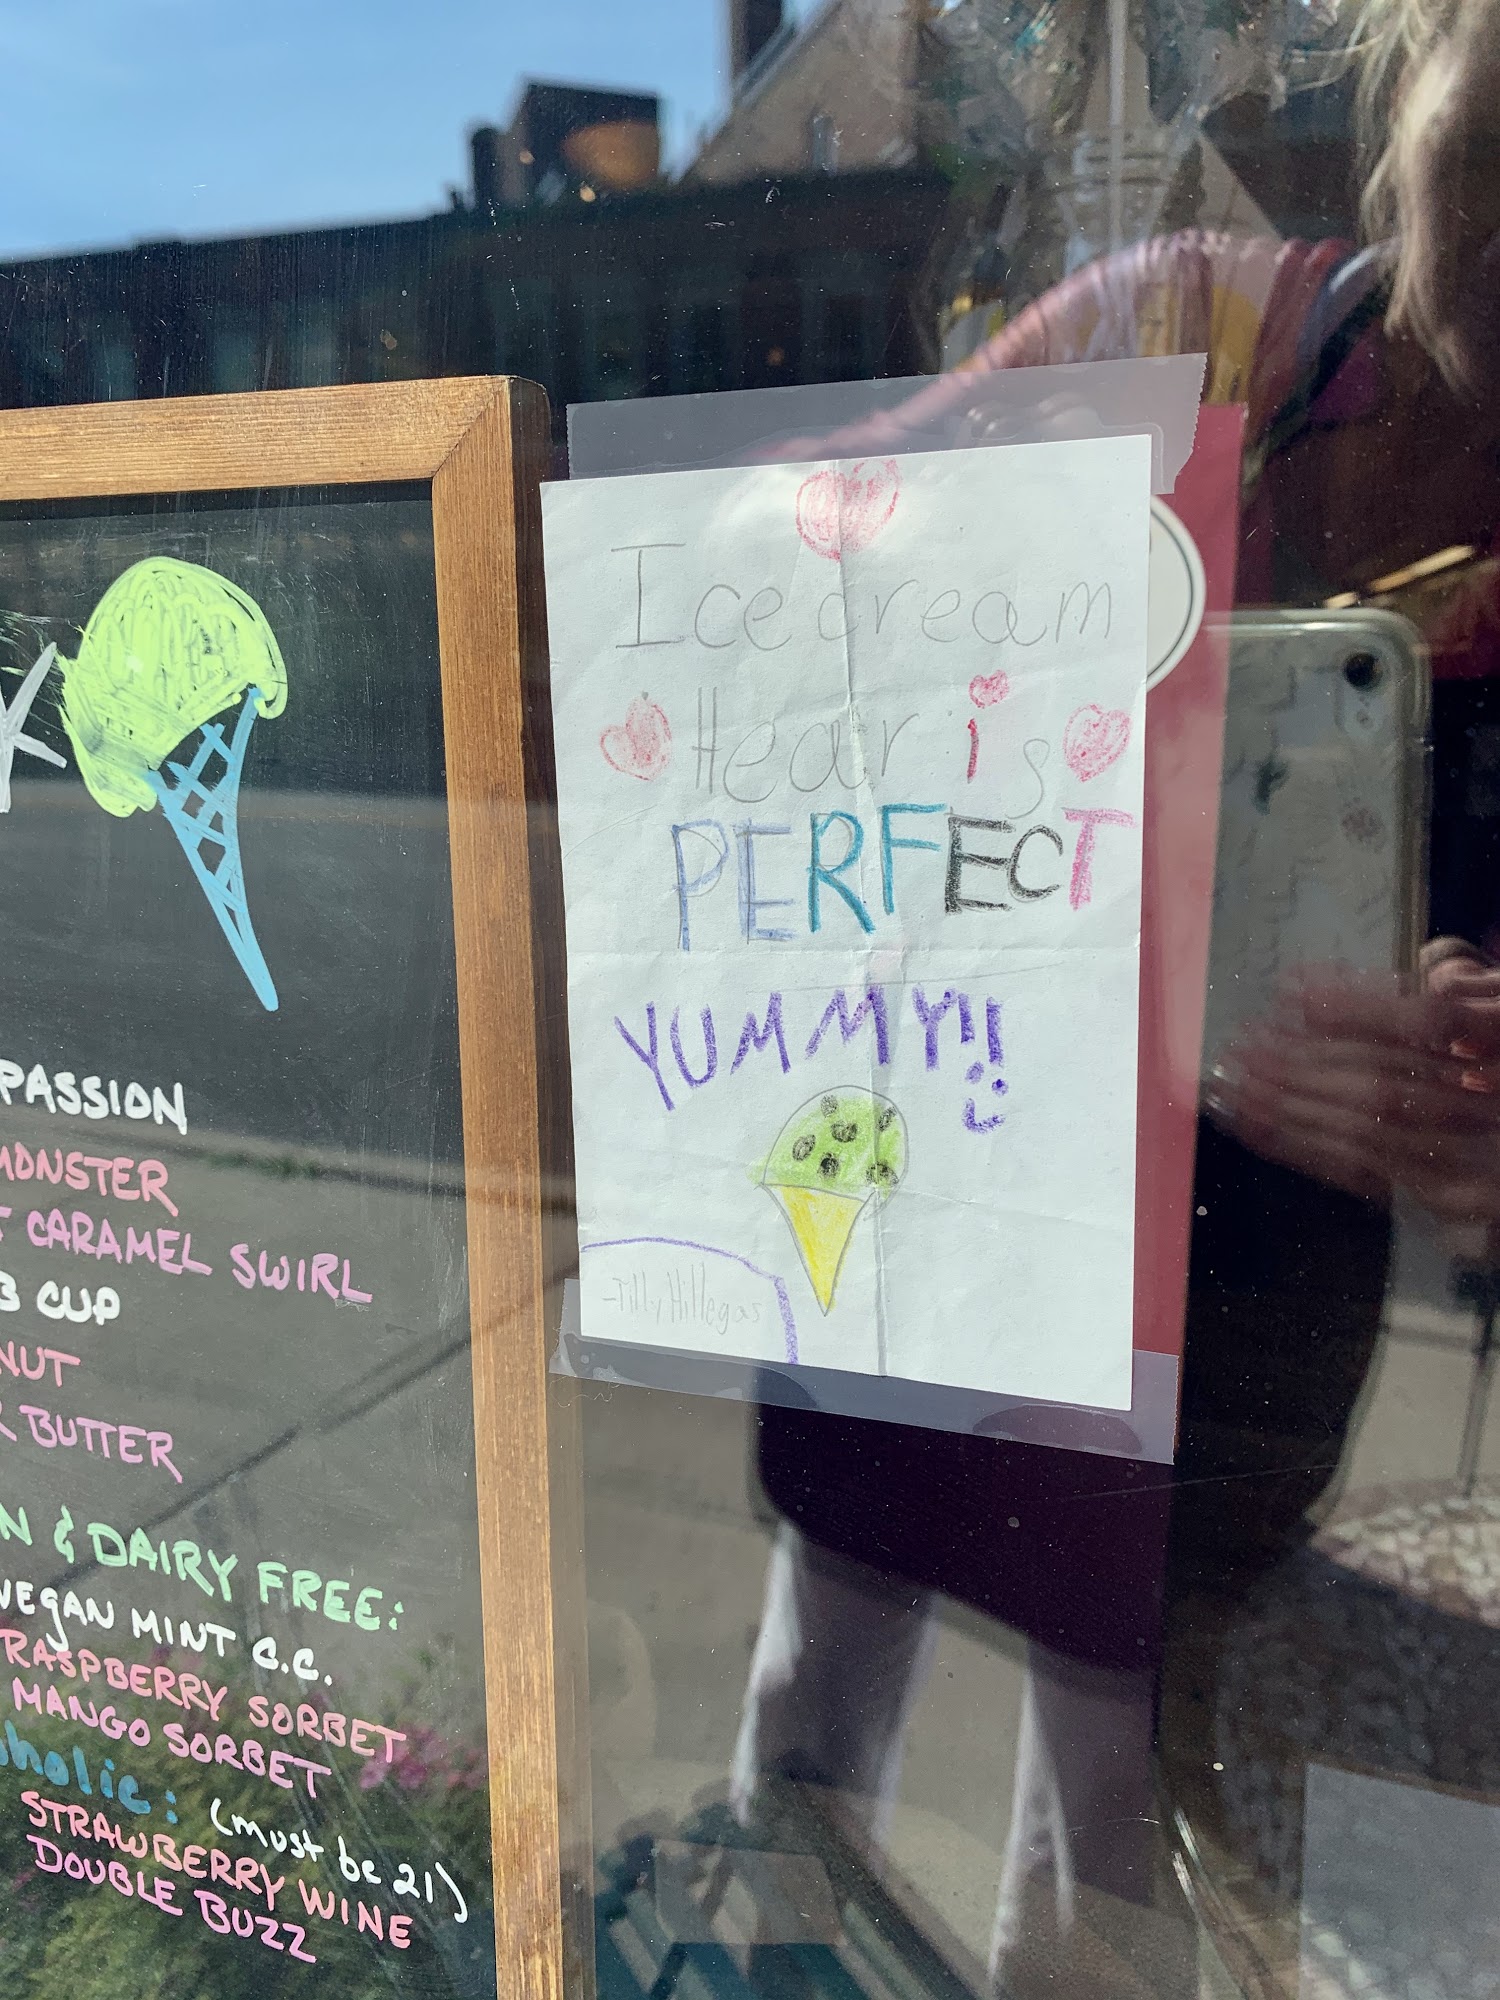 PASSION
MONSTER
CARAMEL SWIRL
CUP
NUT
BUTTER
& DAIRY FREE:
VEGAN MINT C.C.
RASPBERRY SORBET
MANGO SORBET
holic: (must be 21)
STRAWBERRY WINE
DOUBLE BUZZ
Icecream
Hear is
PERFECT
YUMMY!!
-Tilly Hillegas